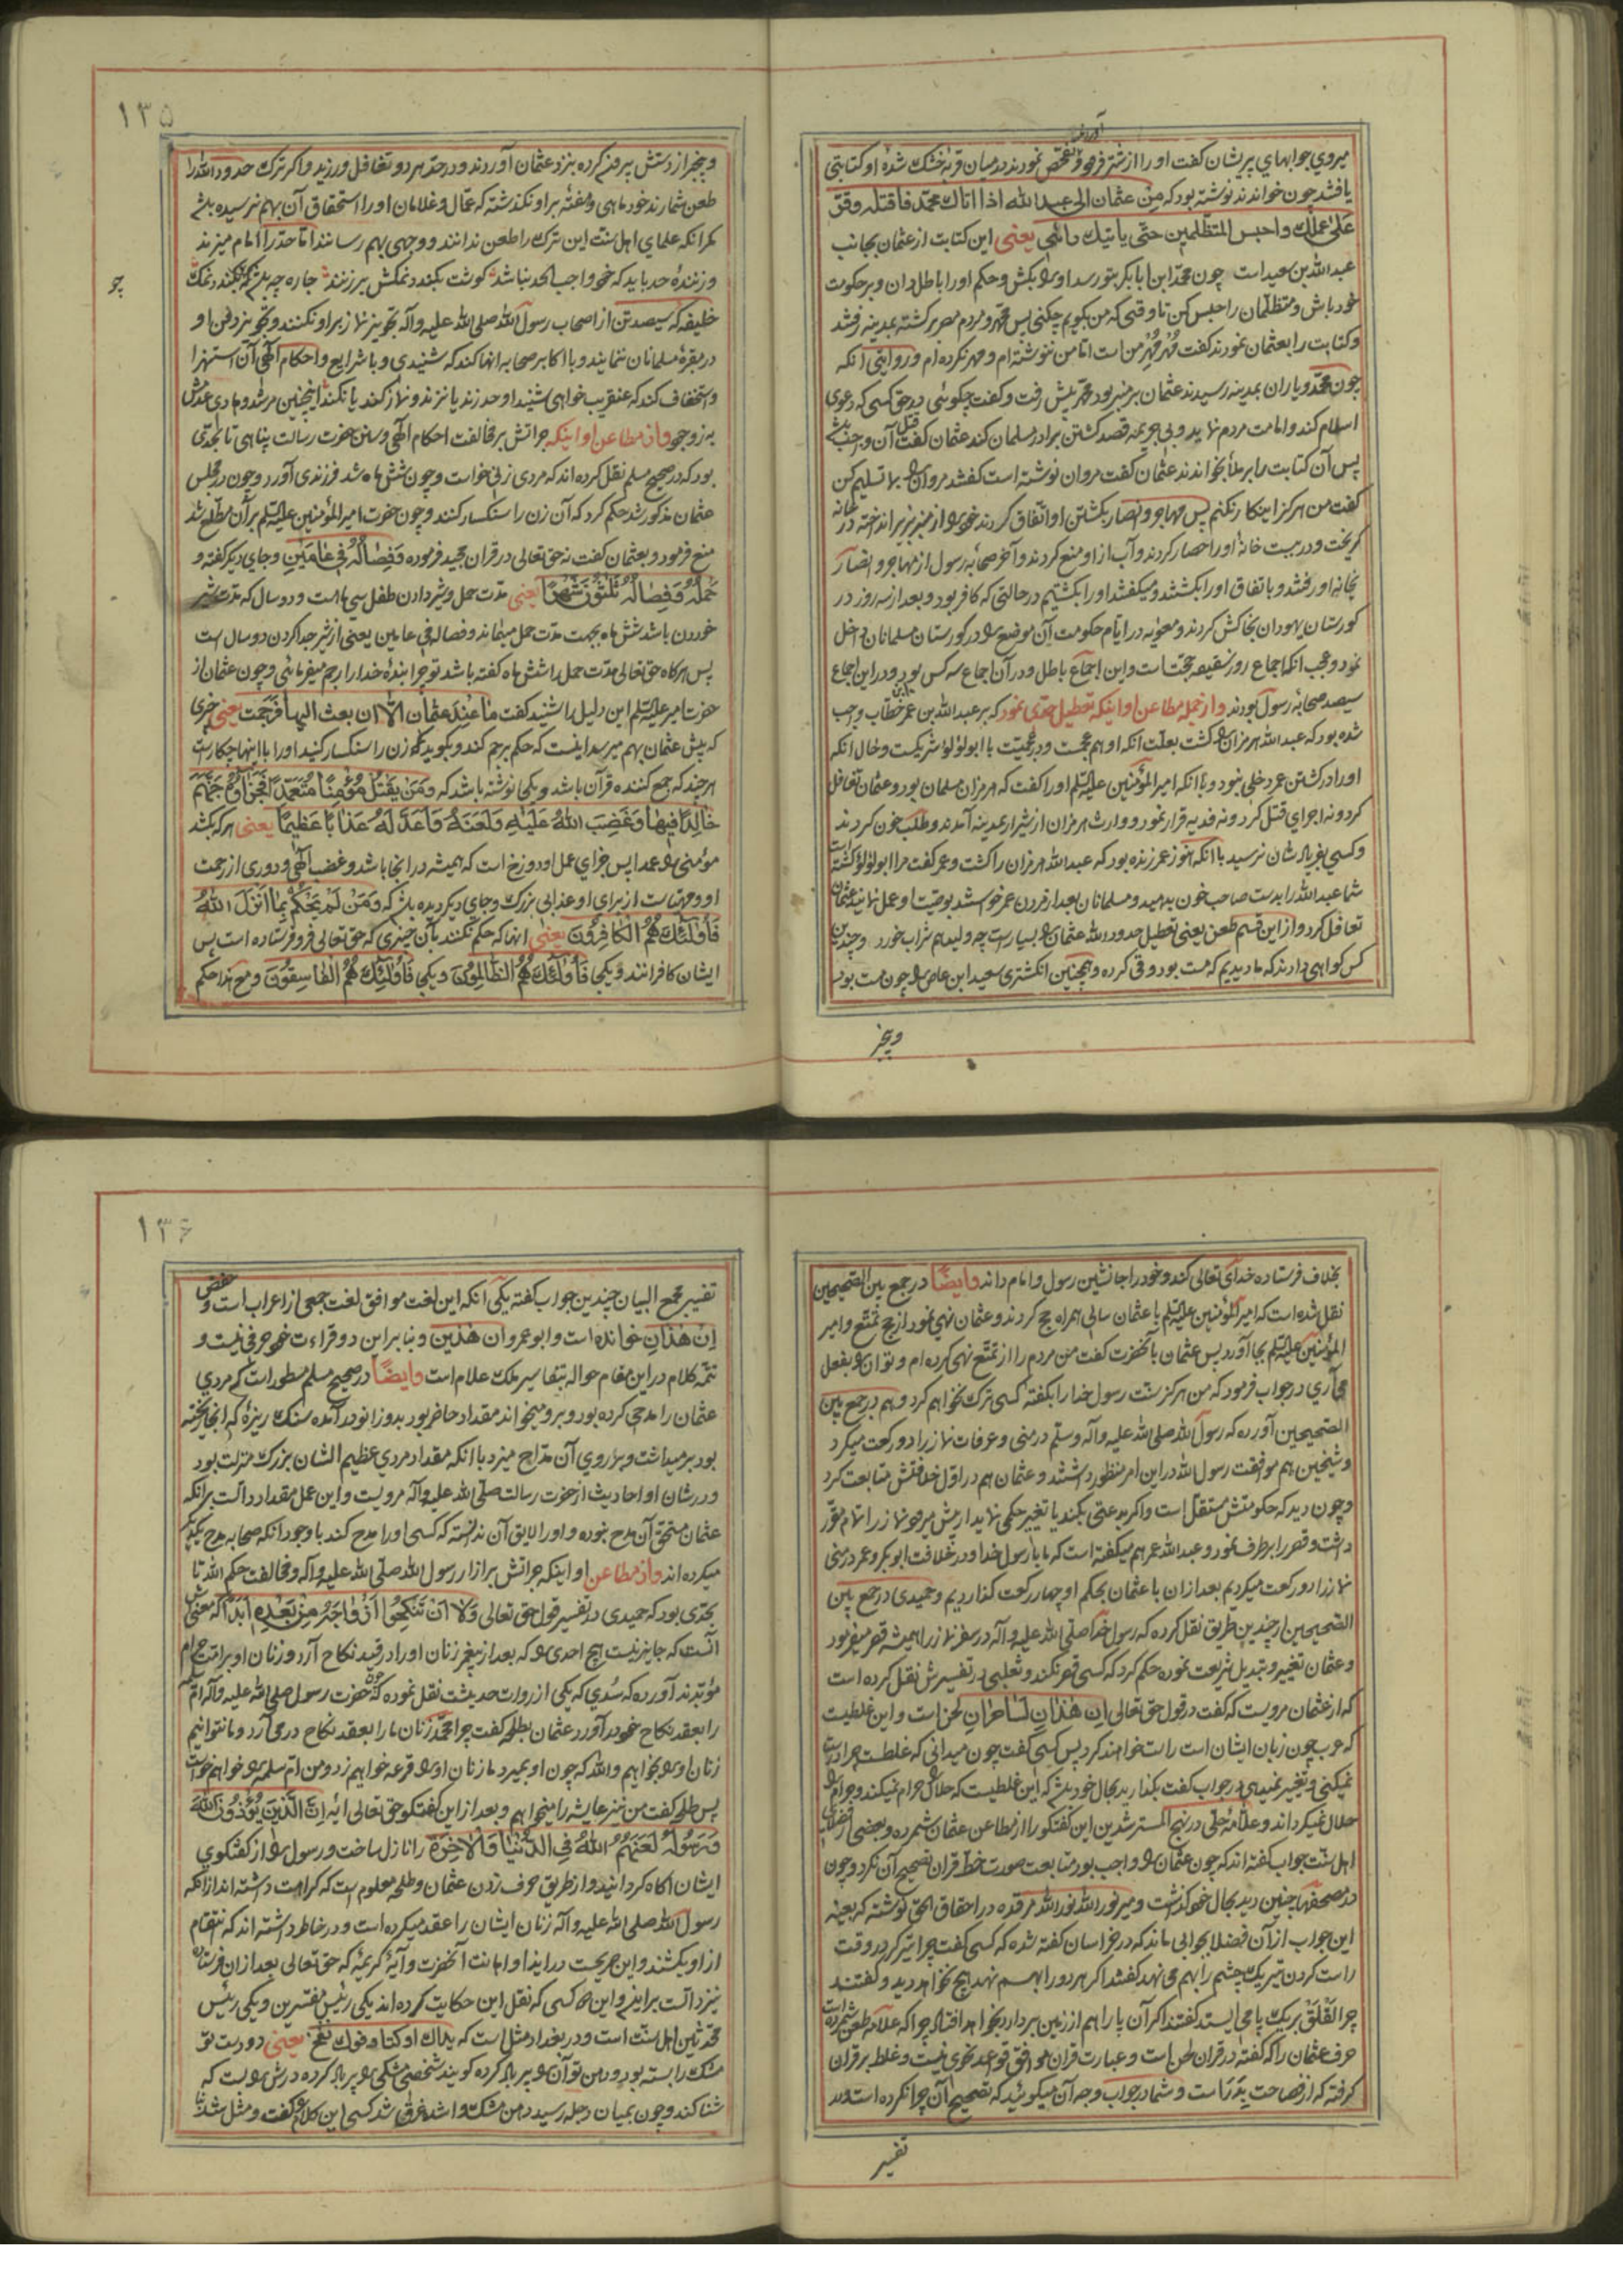 میروي جوابهای پریشان گفت او را از شتر فرو تفحص نمودند در میان قربه خشک شده او کتابتی
یافتند چون خواندند نوشته بود که من عثمان الی عبد الله اذا اتاك محمد فاقتله وقف
علی عملك واحبس المتظلمین حتی یاتیك رائی یعنی این کتابت از عثمان بجانب
عبد الله بن سعید است چون محمد ابن ابابکر بتو رسد او را بکش و حکم او را باطل دان و بر حکومت
خود باش و متظلمان را حبس کن تا وقتی که من بگویم چکنی پس محمد و مردم مصر برگشته بمدینه رفتند
و کتابت را بعثمان نمودند گفت مهر مهر من است اما من ننوشته ام و مهر نکرده ام و روایتی آنکه
چون محمد و یاران بمدینه رسیدند عثمان بر منبر بود محمد پیش رفت و گفت چگوئی در حق کسی که دعوی
اسلام کند و امامت مردم نماید و بی جریمه قصد کشتن برادر مسلمان کند عثمان گفت قتل آن واجب باشد
پس آن کتابت را بر ملا بخواندند عثمان گفت مروان نوشته است گفتند مروان را بما تسلیم کن
گفت من هرگز اینکار نکنم پس مهاجر و انصار بکشتن او اتفاق کردند خود را از منبر بزیر انداخته در خانه
گریخت و در بست خانه او را حصار کردند و آب از او منع کردند و آخر صحابه رسول از مهاجر و انصار
بخانه او رفتند و باتفاق او را بکشتند و میگفتند او را بکشتیم در حالتی که کافر بود و بعد از سه روز در
گورستان یهودان بخاکش کردند و معویه در ایام حکومت آن موضع را در گورستان مسلمانان داخل
نمود و عجب آنکه اجماع روز سقیفه حجت است و این اجماع باطل و در آن اجماع سه کس بود و در این اجماع
سیصد صحابه رسول بودند و از جمله مطاعن او اینکه تعطیل حدی نمود که بر عبد الله بن عمر خطاب واجب
شده بود که عبد الله هرمزان را کشت بعلت آنکه او هم عجمیست و در عجمیت با ابولؤلؤ شریکست و حال آنکه
او را در کشتن عمر دخلی نبود و با آنکه امیر المؤمنین علیه السلم او را گفت که هرمزان مسلمان بود و عثمان تغافل
کرد و نه اجرای قتل کرد و نه فدیه قرار نمود و وارث هرمزان از شیراز بمدینه آمدند و طلب خون کردند
و کسی بفریاد شان نرسید با آنکه هنوز عمر زنده بود که عبد الله هرمزان را کشت و عمر گفت مرا ابولؤلؤ کشته است
شما عبد الله را بدست صاحب خون بدهید و مسلمانان بعد از مردن عمر خواستند بوصیت او عمل نمایند عثمان
تغافل کرد و از این قسم طعن یعنی تعطیل حدود الله عثمان را بسیار است چه ولید هم شراب خورد و چندین
کس گواهی دادند که ما دیدیم که مست بود و قی کرده و همچنین انگشتری سعید ابن عاص را چون مست بود
و بخبر
۱۳۵
و بیخبر از دستش بیرون کرده بنزد عثمان آوردند و در حد هر دو تغافل ورزید و اگر ترک حدود الله را
طعن شمارند خود ماهی و هفتهٔ بر او نگذشته که عمال و غلامان او را استحقاق آن بهم نرسیده باشد
مگر آنکه علمای اهل سنت این ترک را طعن ندانند و وجهی بهم رسانند اما حد را امام میزند
و زنندهٔ حد باید که خود واجب الحد نباشد گوشت بگندد نمکش بر زنند چاره چه باشد گر بگندد نمک
چو
خلیفه که سیصد تن از اصحاب رسول الله صلی الله علیه وآله تجویز نماز بر او نکنند و تجویز دفن او
در مقبرهٔ مسلمانان ننمایند و با اکابر صحابه آنها کند که شنیدی و با شرایع و احکام آلهی آن استهزا
و استخفاف کند که عنقریب خواهی شنید او حد زند یا نزند و نماز کند یا نکند اینچنین مرشد و هادی عدمش
به ز وجود و از مطاعن او اینکه جراتش بر مخالفت احکام آلهی و سنن حضرت رسالت پناهی تا بحدی
بود که در صحیح مسلم نقل کرده اند که مردی زنی خواست و چون شش ماه شد فرزندی آورد و چون در مجلس
عثمان مذکور شد حکم کرد که آن زن را سنگسار کنند و چون حضرت امیر المؤمنین علیه السلم بر آن مطلع شد
منع فرمود و بعثمان گفت نه حق تعالی در قران مجید فرموده وَفِصَالُهُ فِي عَامَيْنِ و جای دیگر گفته و
حَمْلُهُ وَفِصَالُهُ ثَلٰثُونَ شَهْرًا یعنی مدت حمل و شیر دادن طفل سی ماهست و دو سال که مدت شیر
خوردن باشد شش ماه بجهت مدت حمل میماند و فصاله فی عامین یعنی از شیر جدا کردن دو سال است
پس هر گاه حق تعالی مدت حمل را شش ماه گفته باشد تو چرا بندهٔ خدا را رجم میفرمائی و چون عثمان از
حضرت امیر علیه السلم این دلیل را شنید گفت ما عند عثمان الا ان بعث الیها فرجمت یعنی چیزی
که پیش عثمان بهم میرسد اینست که حکم برجم کند و بگوید که زن را سنگسار کنید او را با اینها چکار است
هر چند که جمع کننده قرآن باشد و یکی نوشته باشد که وَمَنْ يَقْتُلْ مُؤْمِنًا مُتَعَمِّدًا فَجَزَاؤُهُ جَهَنَّمُ
خَالِدًا فِيهَا وَغَضِبَ اللّٰهُ عَلَيْهِ وَلَعَنَهُ وَاَعَدَّ لَهُ عَذَابًا عَظِيمًا یعنی هر که بکشد
مؤمنی را عمدا پس جزای عمل او دوزخ است که همیشه در انجا باشد و غضب آلهی و دوری از رحمت
او و مهیاست از برای او عذابی بزرگ و جای دیگر دیده باشد که وَمَنْ لَمْ يَحْكُمْ بِمَا اَنْزَلَ اللّٰهُ
فَاُولٰئِكَ هُمُ الْكَافِرُونَ یعنی انها که حکم نکنند بآن چیزی که حق تعالی فرو فرستاده است پس
ایشان کافرانند و یکی فَاُولٰئِكَ هُمُ الظَّالِمُونَ و یکی فَاُولٰئِكَ هُمُ الْفَاسِقُونَ و مع هذا حکم
بخلاف فرستاده خدای تعالی کند و خود را جانشین رسول و امام داند وایضًا در جمع بین الصحیحین
نقل شده است که امیر المؤمنین علیه السلم با عثمان سالی همراه حج کردند و عثمان نهی نمود از حج تمتع و امیر
المؤمنین علیه السلم بجا آورد پس عثمان بآنحضرت گفت من مردم را از تمتع نهی کرده ام و تو آن را بفعل
می آری در جواب فرمود که من هرگز سنت رسول خدا را بگفته کسی ترک نخواهم کرد و هم در جمع بین
الصحیحین آورده که رسول الله صلی الله علیه وآله وسلم در منی و عرفات نماز را دو رکعت میکرد
و شیخین هم موافقت رسول الله در این امر منظور داشتند و عثمان هم در اول خلافتش متابعت کرد
و چون دید که حکومتش مستقل است و اگر بدعتی بکند یا تغییر حکمی نماید از پیش میرود نماز را تمام مقرر
داشت و قصر را بر طرف نمود و عبد الله عمر هم میگفته است که ما با رسول خدا و در خلافت ابوبکر و عمر در منی
نماز را دو رکعت میکردیم بعد از ان با عثمان بحکم او چهار رکعت گذاردیم و حمیدی در جمع بین
الصحیحین از چندین طریق نقل کرده که رسول خدا صلی الله علیه وآله در سفر نماز را همیشه قصر میفرمود
و عثمان تغییر و تبدیل شریعت نموده حکم کرد که کسی قصر نکند و ثعلبی در تفسیرش نقل کرده است
که از عثمان مرویست که گفت در قول حق تعالی اِن هٰذَانِ لَسَاحِرَانِ لحن است و این غلطیست
که عرب چون زبان ایشان است راست خواهند کرد پس کسی گفت چون میدانی که غلطست چرا درست
نمیکنی و تغییر نمیدهی در جواب گفت بگذارید بحال خود باشد که این غلطیست که حلال را حرام نمیکند و حرام را
حلال نمیگرداند و علامهٔ حلی در نهج المسترشدین این گفتگو را از مطاعن عثمان شمرده و بعضی از فضلای
اهل سنت جواب گفته اند که چون عثمان را واجب بود متابعت صورت خط قران تصحیح آن نکرد و چون
در مصحفها چنین دید بحال خود گذاشت و میر نور الله نور الله مرقده در احقاق الحق نوشته که بعینه
این جواب از آن فضلا بجوابی ماند که در خراسان گفته شده که کسی گفت چرا تیرگر در وقت
راست کردن تیر یک چشم را بهم می نهد گفتند اگر هر دو را بهم نهد هیچ نخواهد دید و گفتند
چرا لقلق بر یک پا می ایستد گفتند اگر آن پا را هم از زمین بردارد بخواهد افتاد چرا که علامه طعن شمرده است
حرف عثمان را که گفته در قران لحن است و عبارت قران موافق قواعد نحوی نیست و غلط بر قران
گرفته که از فصاحت بدر است و شما در جواب وجه آن میگوئید که تصحیح آن چرا نکرده است و در
تفسیر
۱۳۶
تفسیر مجمع البیان چندین جواب گفته یکی آنکه این لغت موافق لغت جمعی از اعراب است و حفص
اِن هٰذَانِ خوانده است و ابو عمرو ان هٰذین و بنابر این دو قراءت خود حرفی نیست و
تتمه کلام در این مقام حواله بتفاسیر ملک علام است وایضًا در صحیح مسلم مسطور است که مردی
عثمان را مدحی کرده بود و بر او میخواند مقداد حاضر بود بدو زانو در آمده سنگ ریزه که انجا ریخته
بود بر میداشت و بر روی آن مداح میزد با آنکه مقداد مردی عظیم الشان بزرگ منزلت بود
و در شان او احادیث از حضرت رسالت صلی الله علیه وآله مرویست و این عمل مقداد دالست بر آنکه
عثمان مستحق آن مدح نبوده و او را لایق آن ندانسته که کسی او را مدح کند با وجود آنکه صحابه مدح یکدیگر
میکرده اند و از مطاعن او اینکه جراتش بر ازار رسول الله صلی الله علیه وآله و مخالفت حکم الله تا
بحدی بود که حمیدی در تفسیر قول حق تعالی وَلَا اَنْ تَنْكِحُوا اَزْوَاجَهُ مِنْ بَعْدِهِ اَبَدًا که معنیش
آنست که جایز نیست هیچ احدی را که بعد از پیغمبر زنان او را در قید نکاح آرد و زنان او بر امت حرام
مؤبدند آورده که سدی که یکی از روات حدیثست نقل نموده که حضرت رسول صلی الله علیه وآله ام
را بعقد نکاح خود در آورد عثمان بطلحه گفت چرا محمد زنان ما را بعقد نکاح در می آرد و ما نتوانیم
زنان او را بخواهیم والله که چون او بمیرد ما زنان او را قرعه خواهیم زد و من ام سلمه را خواهم خواست
پس طلحه گفت من نیز عایشه را میخواهم و بعد از این گفتگو حق تعالی ایه اِنَّ الَّذِينَ يُؤْذُونَ اللّٰهَ
وَرَسُولَهُ لَعَنَهُمُ اللّٰهُ فِي الدُّنْيَا وَالْاٰخِرَةِ را نازل ساخت و رسول را از گفتگوی
ایشان اگاه گردانید و از طریق حرف زدن عثمان و طلحه معلوم است که کراهت داشته اند از آنکه
رسول الله صلی الله علیه وآله زنان ایشان را عقد میکرده است و در خاطر داشته اند که انتقام
از او بکشند و این صریحست در ایذا و اهانت آنحضرت و آیهٔ کریمه که حق تعالی بعد از ان فرستاده
نیز دالست بر ایذا و این دو کسی که نقل این حکایت کرده اند یکی رئیس مفسرین و یکی رئیس
محدثین اهل سنت است و در بغداد مثل است که یداك اوکتا وفوك نفخ یعنی دو دست تو
مشک را بسته بود و دهن تو آن را پر باد کرده گویند شخصی مشکی را پر باد کرده درش را بست که
شنا کند و چون بمیان دجله رسید دهن مشک وا شد غرق شد کسی این کلام را گفت و مثل شد